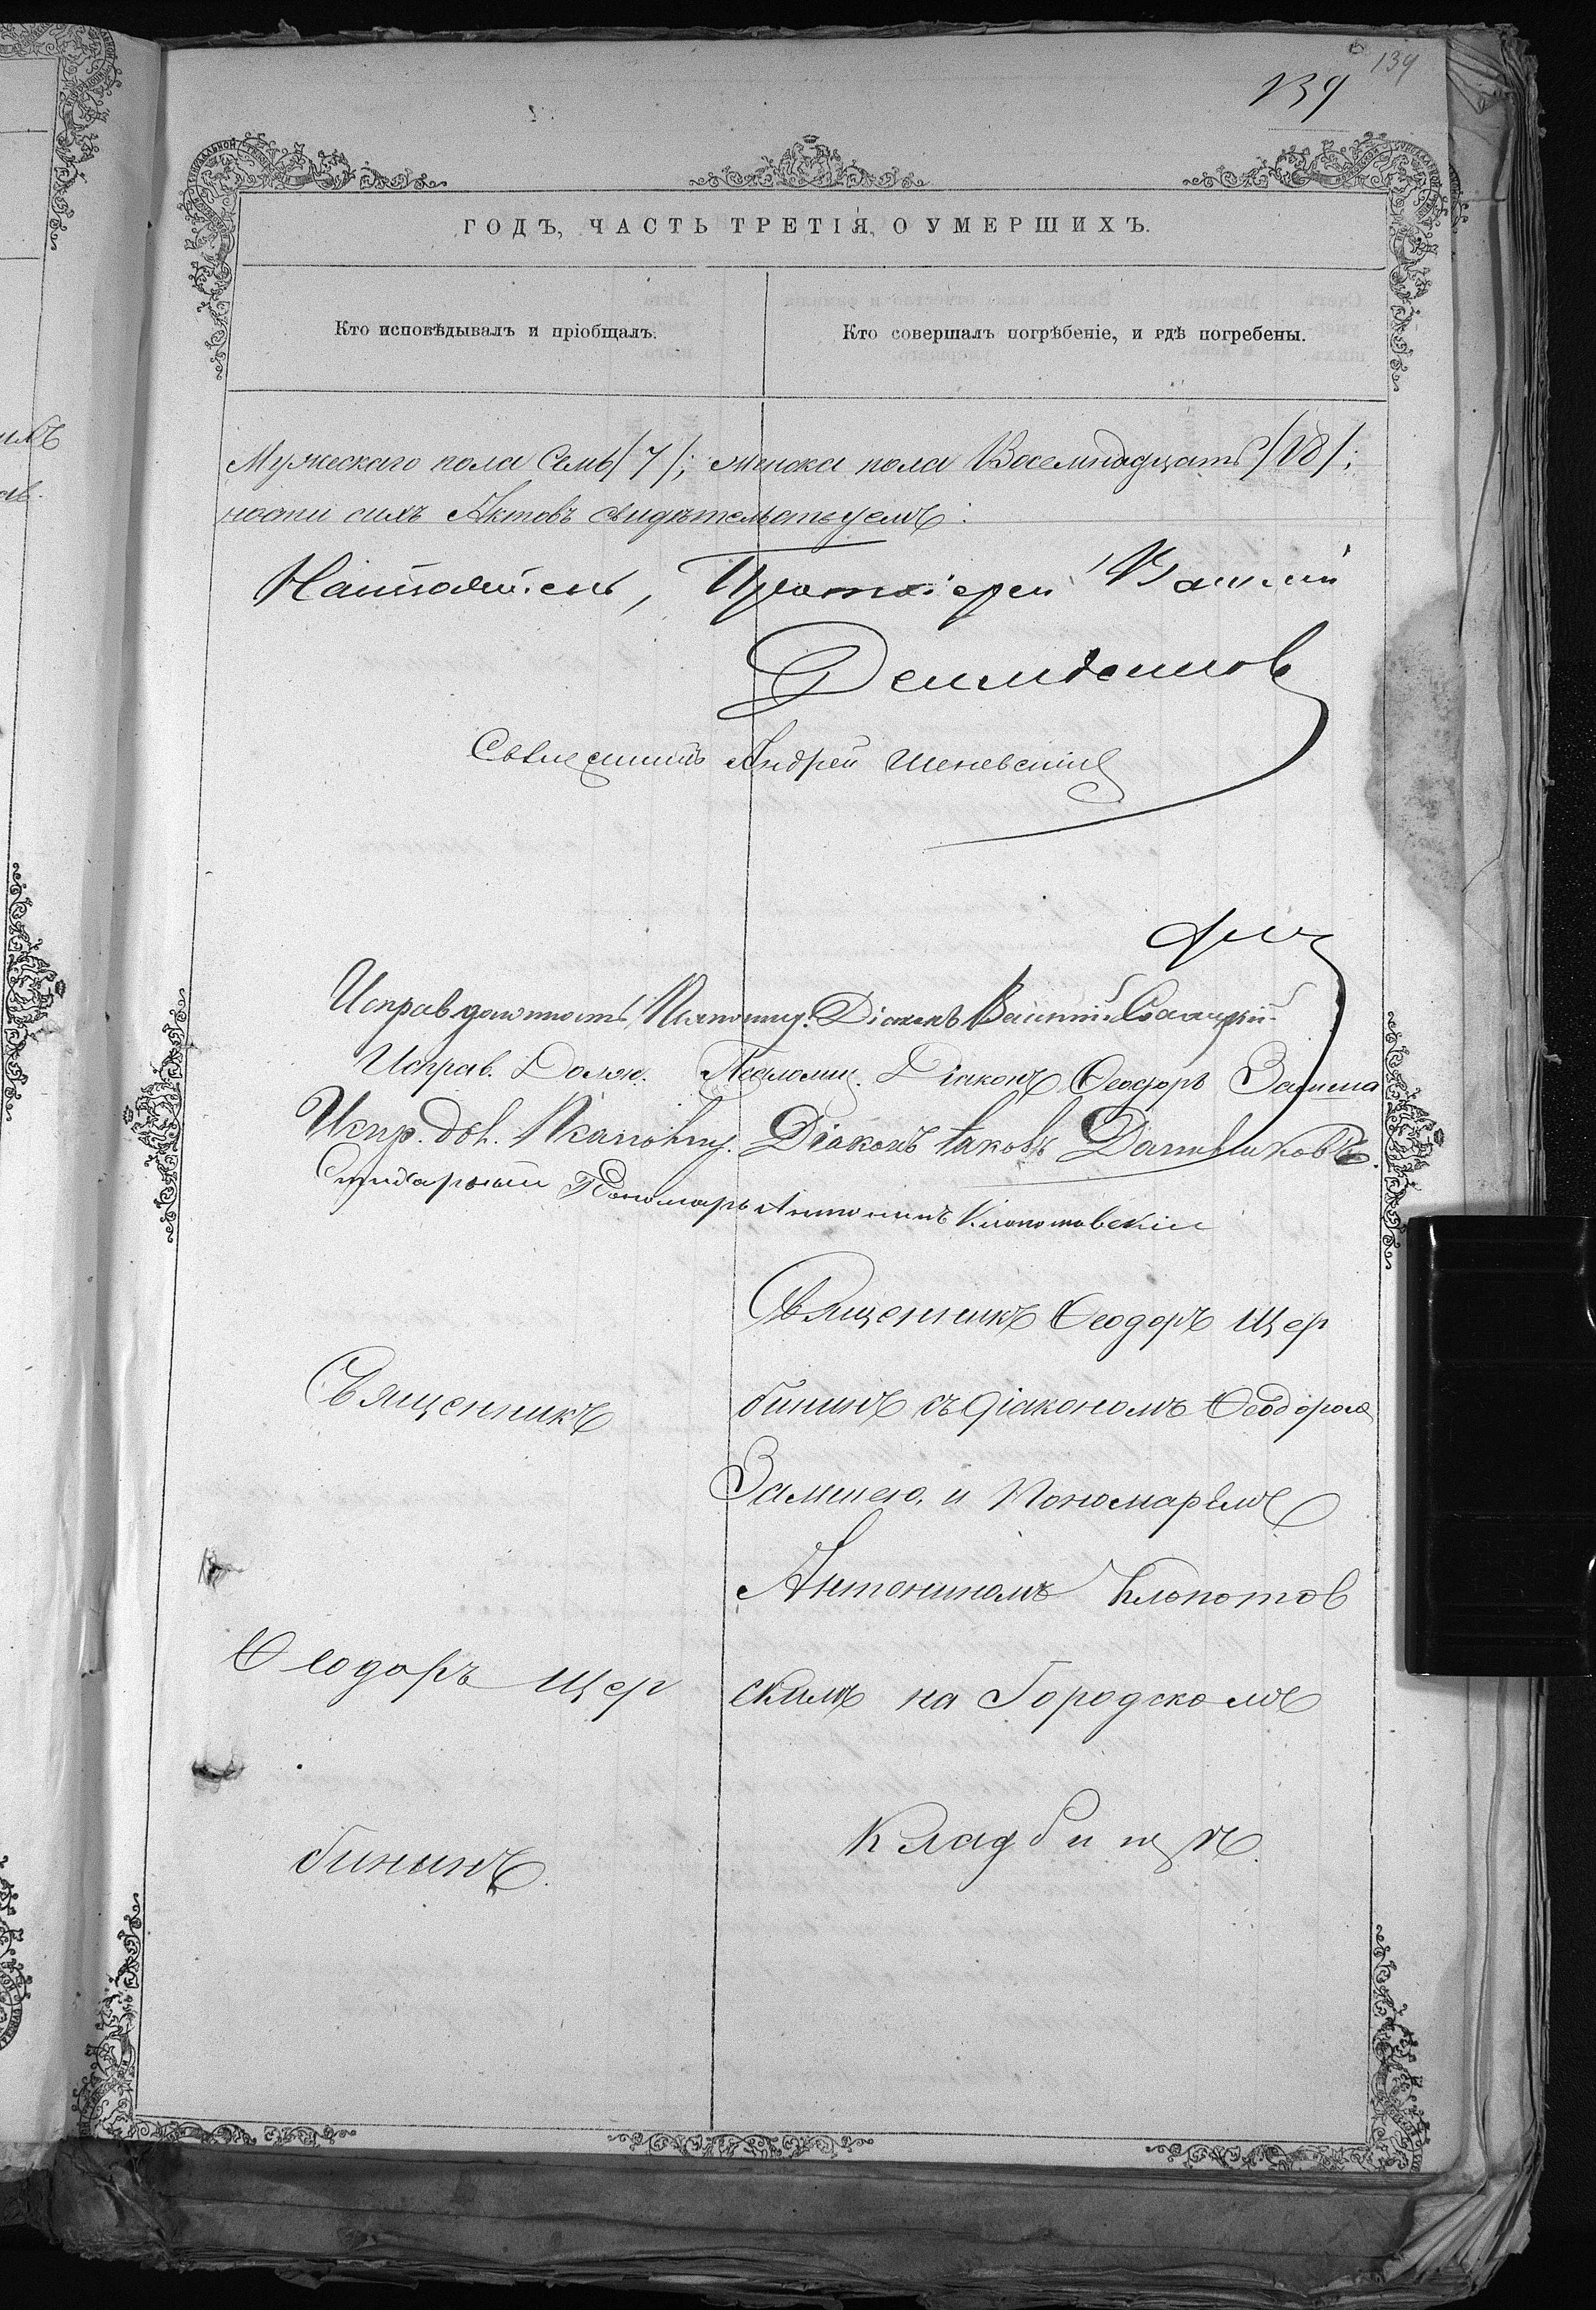 139
139
ГОДЪ, ЧАСТЬ ТРЕТІЯ, О УМЕРШИХЪ.
Кто исповѣдывалъ и пріобщалъ.
Кто совершалъ погрѣбеніе, и гдѣ погребены.
Мужескаго пола Семь /7/; женска пола Восемнадцать /18/;
ности сихъ Актовъ свидѣтельствуемъ:
Настоятель, Протоіерей
Священникъ Андрей
Исправ должность Псаломщ. Діаконъ Василій
Исправ. Долж. Псаломщ. Діаконъ Ѳеодоръ Замша
Испр. дол. Псаломщ. Діаконъ Іаковъ
Пономарь Антонинъ Клопотовскій
Священникъ Ѳеодоръ Щер
Священникъ
бининъ съ діакономъ Ѳеодоромъ
Замшею, и Пономаремъ
Антониномъ Клопотов
Ѳеодоръ Щер
скимъ на Городскомъ
Кладбищѣ.
бининъ.